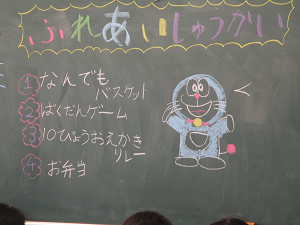 ふれあいしゅうかい
1 なんでも
バスケット
2 ばくだんゲーム
3 10びょうおえかき
リレー
4 お弁当